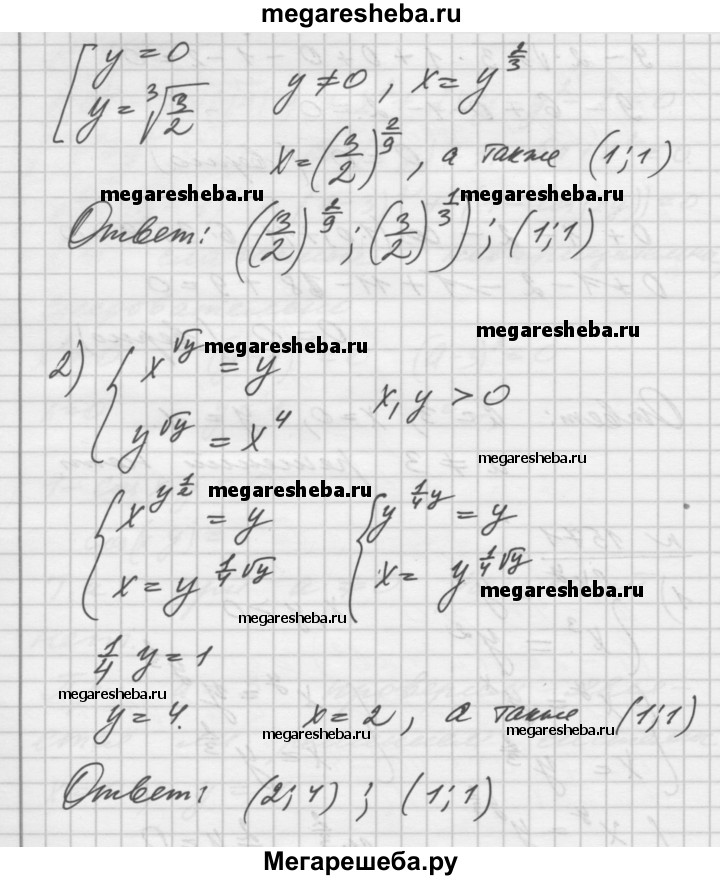 megaresheba.ru
y = 0
y = ∛(3/2)    y ≠ 0, x = y^(2/3)
x = (3/2)^(2/9), а также (1; 1)
megaresheba.ru megaresheba.ru
Ответ: ((3/2)^(2/9); (3/2)^(1/3)); (1; 1)
megaresheba.ru
2) { x^(√y) = y
megaresheba.ru
x, y > 0
y^(√y) = x^4
megaresheba.ru
{ x^(y^(1/2)) = y    { y^(1/4 y) = y
megaresheba.ru
x = y^(1/4 √y)    x = y^(1/4 √y)
megaresheba.ru
megaresheba.ru
1/4 y = 1
megaresheba.ru
y = 4.    x = 2, а также (1; 1)
megaresheba.ru megaresheba.ru
Ответ: (2; 4); (1; 1)
Мегарешеба.ру